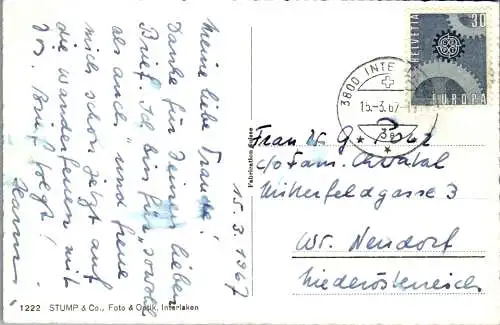 15.3.1967
Meine liebe Traude!
Danke für Deinen lieben
Brief. Ich bin für "sowohl
als auch" und freue
mich schon jetzt auf
die Wanderferien mit
Dir. Brief folgt!
1222 STUMP & Co., Foto & Optik, Interlaken
Fabrication Suisse
HELVETIA 30
EUROPA
3800 INTE
15.-3.67
Frau
c/o Fam.
Mitterfeldgasse 3
Wr. Neudorf
Niederösterreich